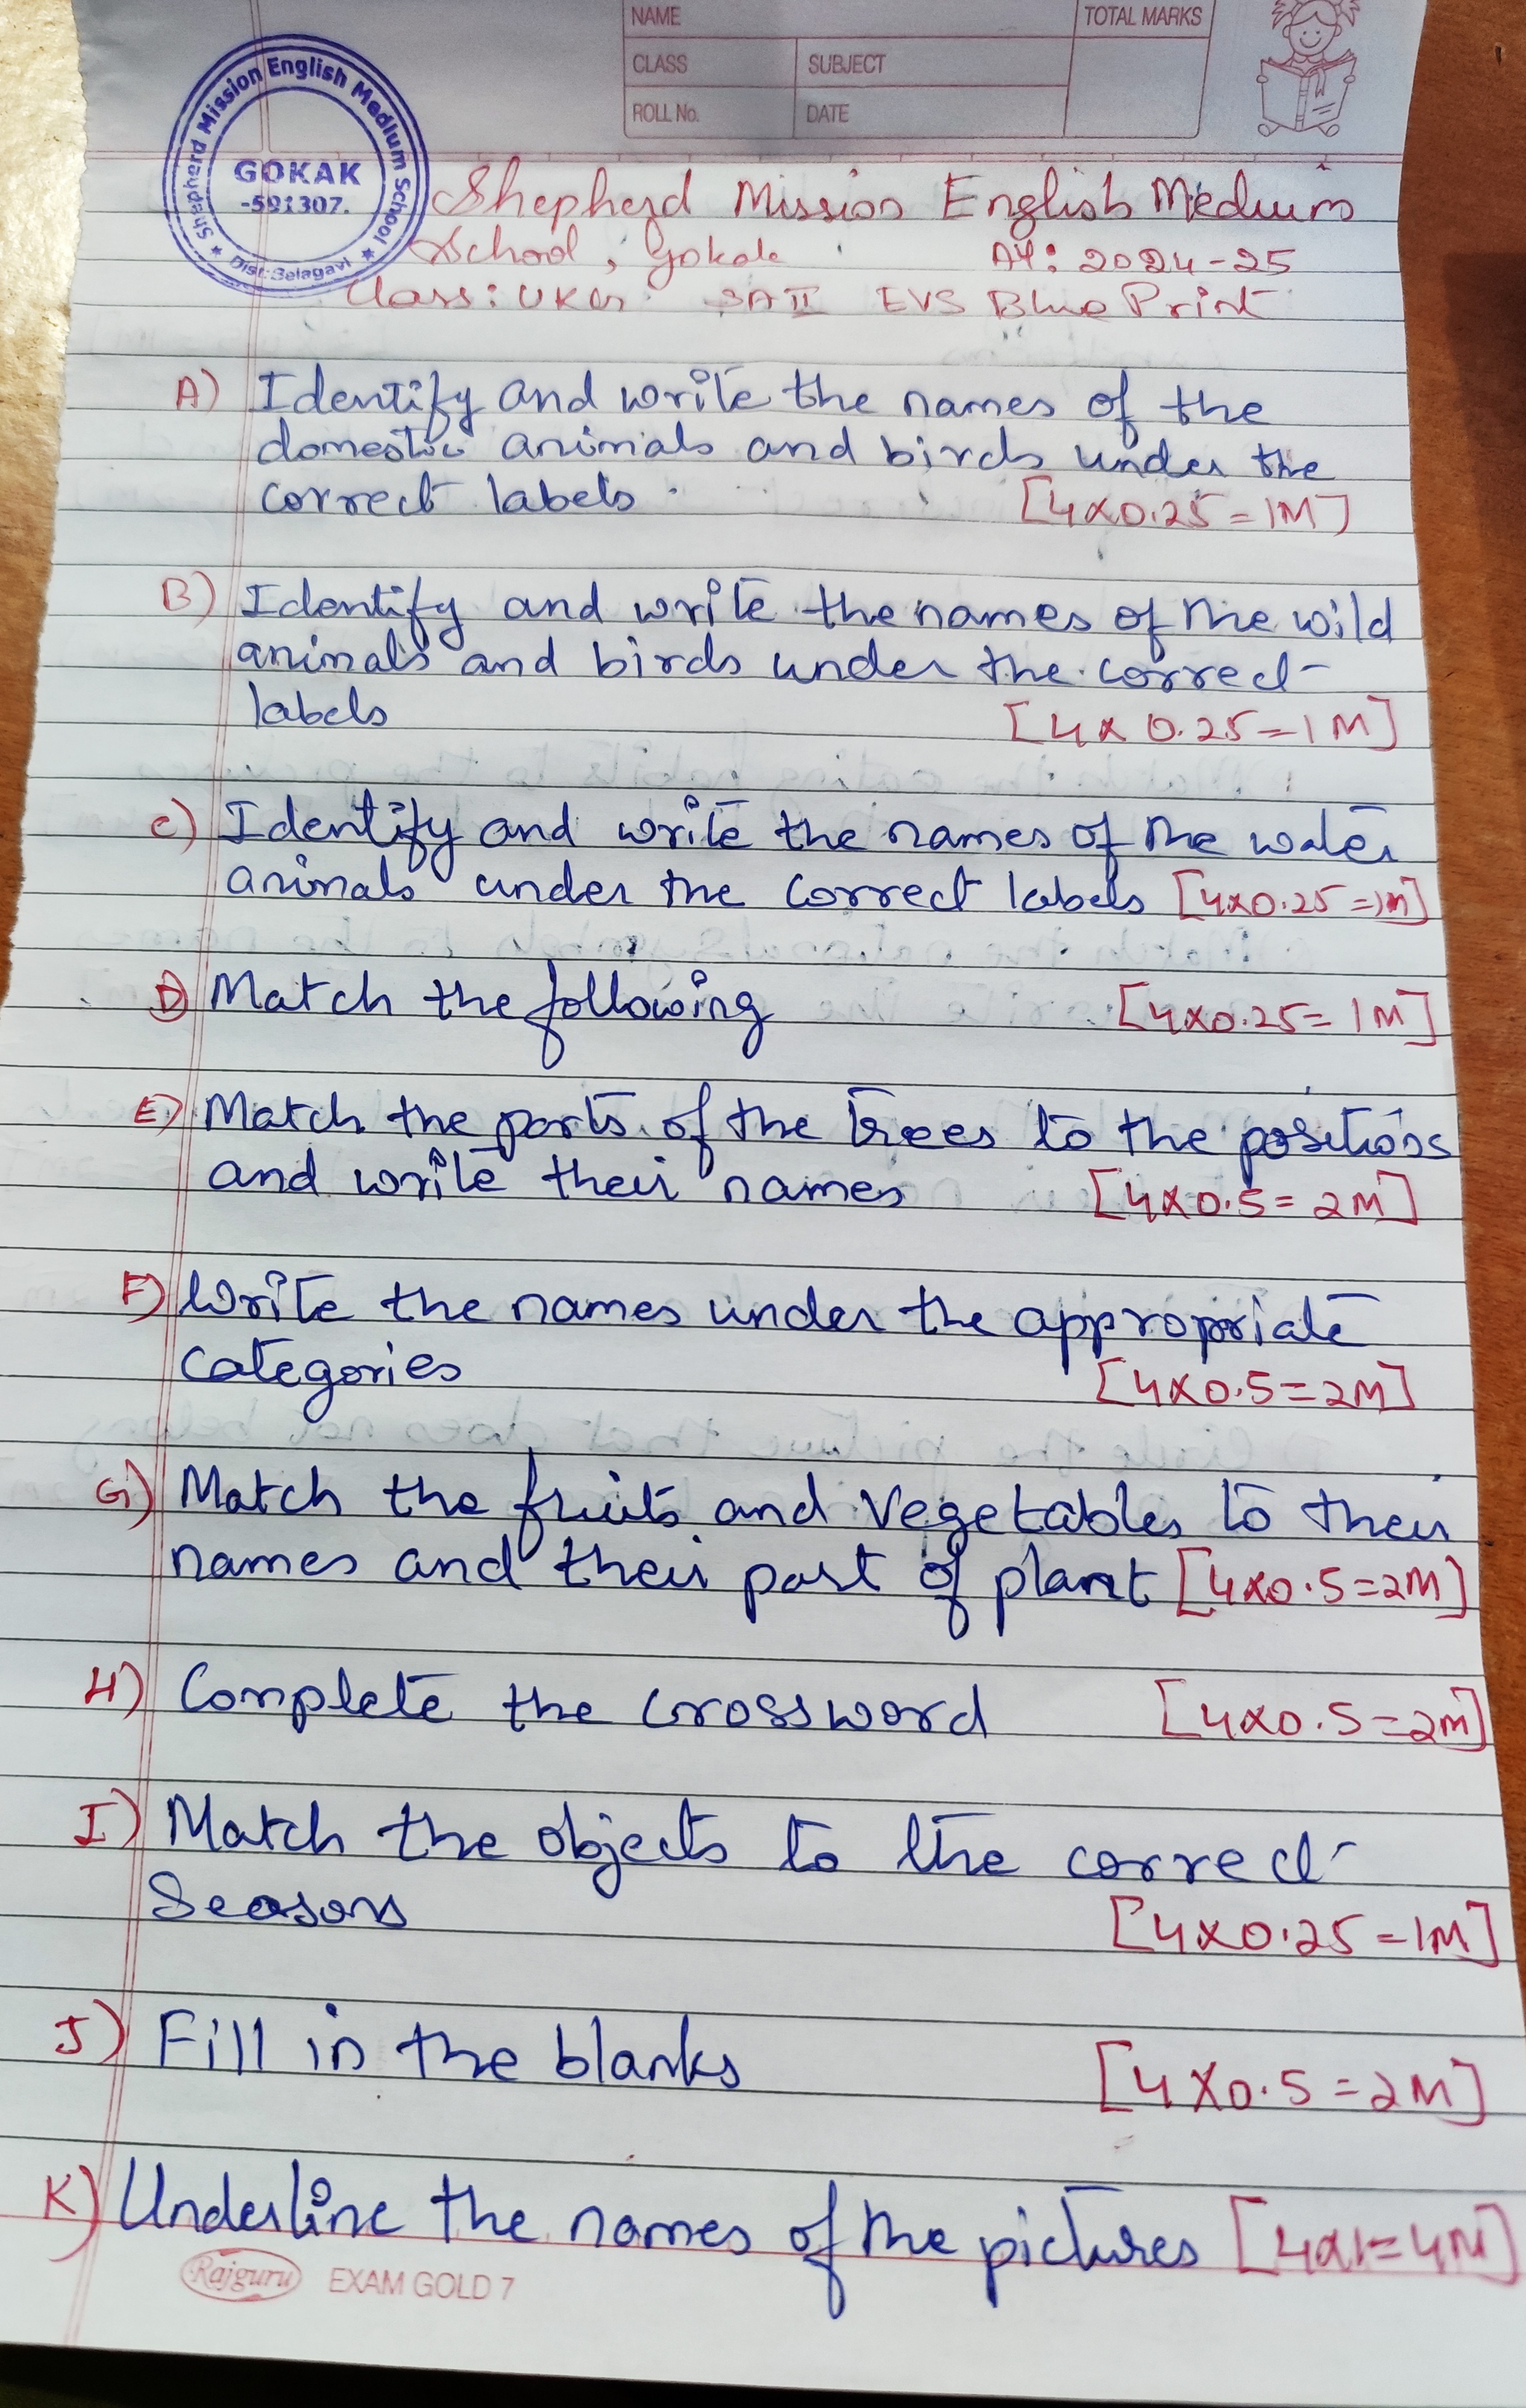 NAME
TOTAL MARKS
CLASS
SUBJECT
ROLL No.
DATE
Shepherd Mission English Medium School
GOKAK
-591307.
Dist: Belagavi
Shepherd Mission English Medium
School, Gokak AY: 2024-25
Class: UKG SA II EVS Blue Print
A) Identify and write the names of the
domestic animals and birds under the
correct labels. [4x0.25=1M]
B) Identify and write the names of the wild
animals and birds under the correct
labels [4x0.25=1M]
C) Identify and write the names of the water
animals under the correct labels [4x0.25=1M]
D) Match the following [4x0.25=1M]
E) Match the parts of the trees to the positions
and write their names [4x0.5=2M]
F) Write the names under the appropriate
categories [4x0.5=2M]
G) Match the fruits and Vegetables to their
names and their part of plant [4x0.5=2M]
H) Complete the crossword [4x0.5=2M]
I) Match the objects to the correct
Seasons [4x0.25=1M]
J) Fill in the blanks [4x0.5=2M]
K) Underline the names of the pictures [4x1=4M]
Rajguru EXAM GOLD 7